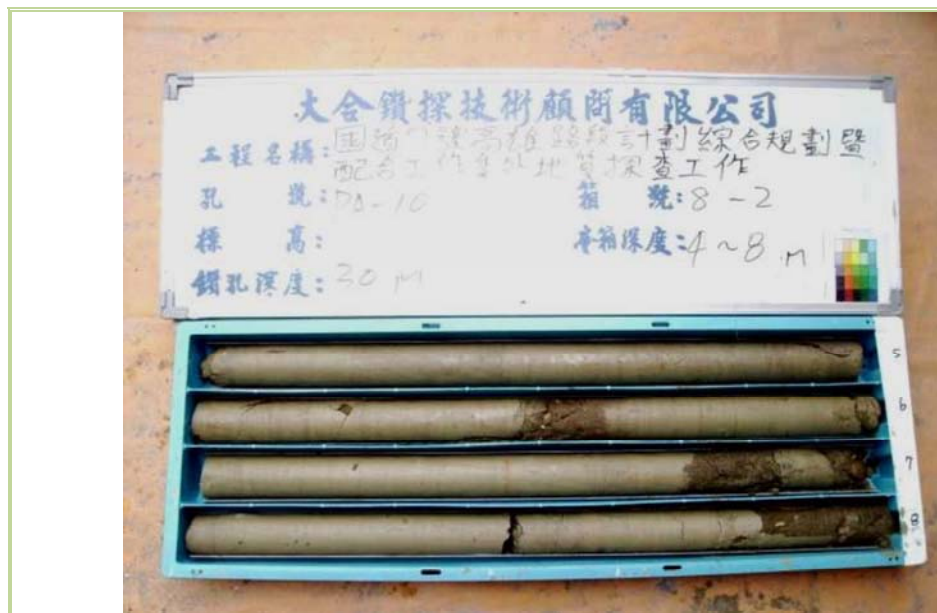 大合鑽探技術顧問有限公司
工程名稱:国道 高雄路段計劃綜合規劃暨
配合工作 地質探查工作
孔號: -10 箱號:8-2
標高: 每箱深度:4~8 M
鑽孔深度:30 M
5
6
7
8